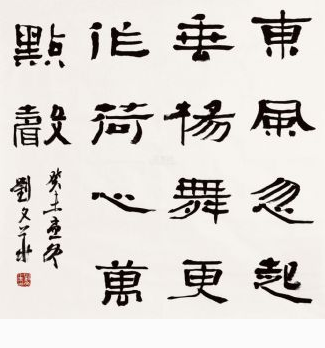 東風忽起
垂楊舞更
作荷心萬
點聲
癸未
劉文華